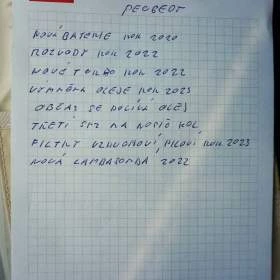 PEUGEOT
NOVÁ BATERIE ROK 2020
ROZVODY ROK 2022
NOVÉ TURBO ROK 2022
VÝMĚNA OLEJE ROK 2023
OBČAS SE DOLÍVÁ OLEJ
TŘETÍ SPZ NA NOSIČ KOL
FILTRY VZDUCHOVÍ, PILOVÍ ROK 2023
NOVÁ LAMBASONDA 2022